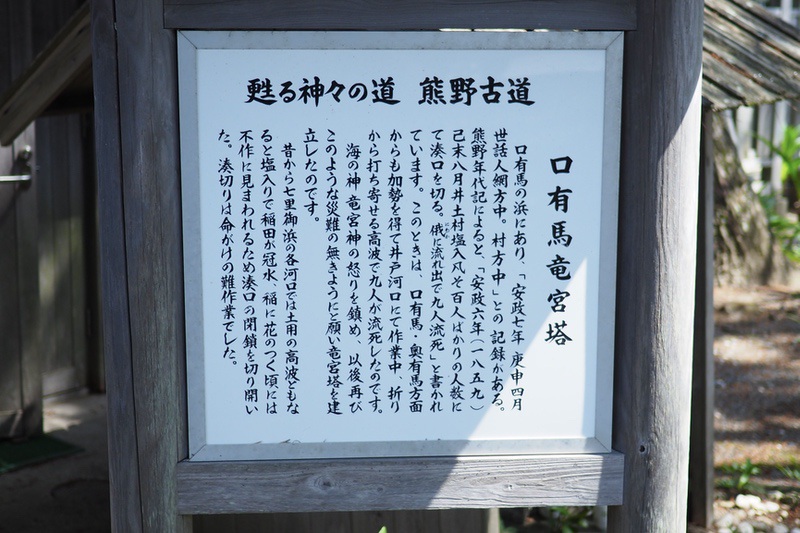 甦る神々の道 熊野古道
口有馬竜宮塔
口有馬の浜にあり、「安政七年 庚申四月
世話人網方中。村方中」との記録がある。
熊野年代記によると、「安政六年(一八五九)
己末八月井土村塩入凡そ百人ばかりの人数に
て湊口を切る。俄に流れ出で九人流死」と書かれ
ています。このときは、口有馬・奥有馬方面
からも加勢を得て井戸河口にて作業中、折り
から打ち寄せる高波で九人が流死したのです。
海の神 竜宮神の怒りを鎮め、以後再び
このような災難の無きようにと願い竜宮塔を建
立したのです。
昔から七里御浜の各河口では土用の高波ともな
ると塩入りで稲田が冠水、稲に花のつく頃には
不作に見まわれるため湊口の閉鎖を切り開い
た。湊切りは命がけの難作業でした。